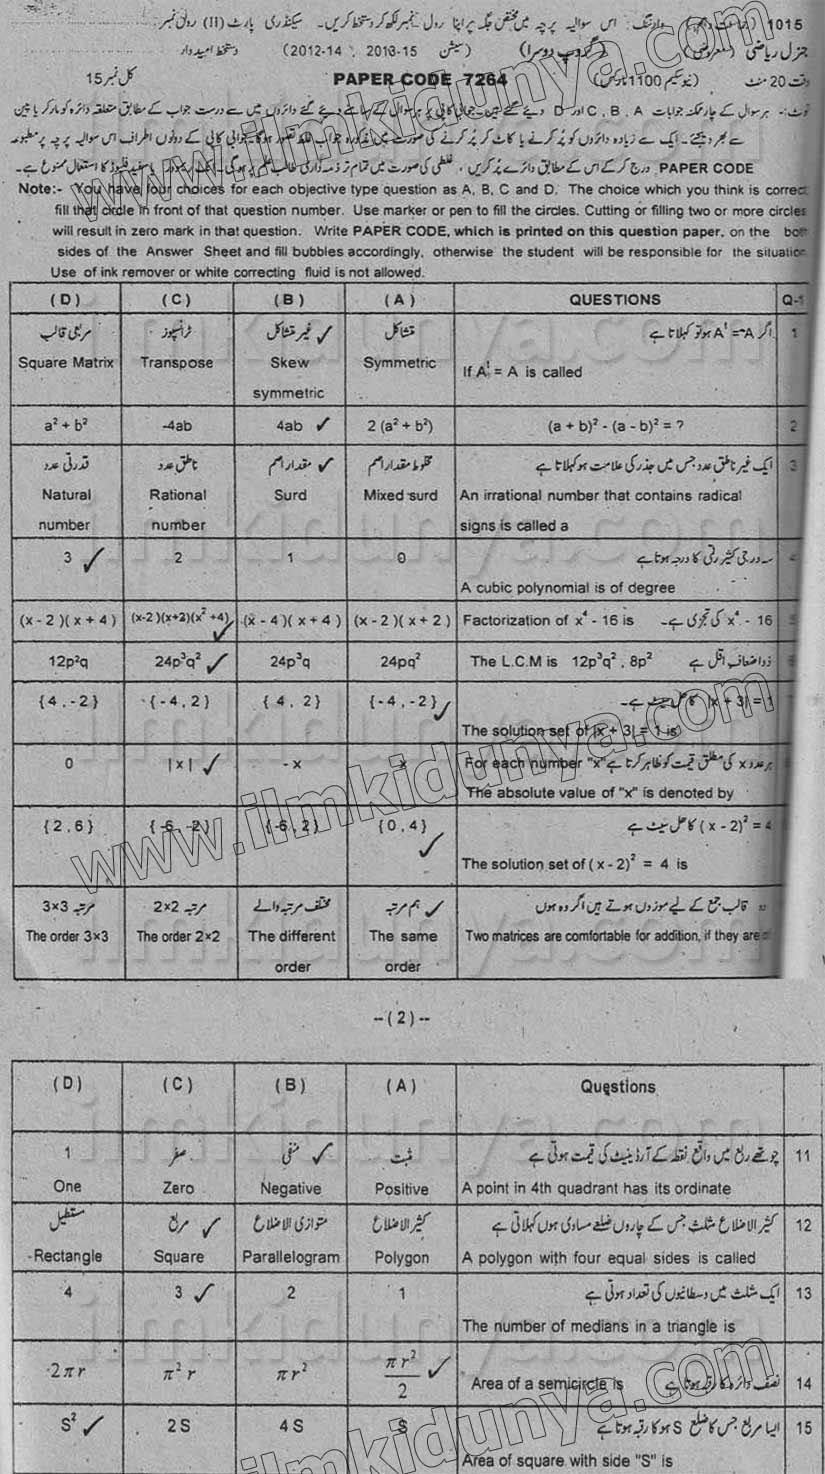 1015 (جماعت دہم) وارننگ: اس سوالیہ پرچہ میں مختص جگہ پر اپنا رول نمبر لکھ کر دستخط کریں۔ سیکنڈری پارٹ (II) رول نمبر
جنرل ریاضی (معروضی) (گروپ دوسرا) (سیشن 2013-15, 2012-14) دستخط امیدوار
وقت 20 منٹ (نیو سکیم 1100 مارکس) PAPER CODE 7264 کل نمبر 15
نوٹ:- ہر سوال کے چار ممکنہ جوابات A, B, C اور D دیئے گئے ہیں۔ جوابی کاپی پر ہر سوال کے سامنے دیئے گئے دائروں میں سے درست جواب کے مطابق متعلقہ دائرہ کو مارکر یا پین
سے بھر دیجئے۔ ایک سے زیادہ دائروں کو پُر کرنے یا کاٹ کر پُر کرنے کی صورت میں مذکورہ جواب غلط تصور ہوگا۔ جوابی کاپی کے دونوں اطراف اس سوالیہ پرچہ پر مطبوعہ
PAPER CODE درج کر کے اس کے مطابق دائرے پُر کریں، غلطی کی صورت میں تمام تر ذمہ داری طالب علم پر ہوگی۔ یا سفید فلیوڈ کا استعمال ممنوع ہے۔
Note:- You have four choices for each objective type question as A, B, C and D. The choice which you think is correct
fill that circle in front of that question number. Use marker or pen to fill the circles. Cutting or filling two or more circles
will result in zero mark in that question. Write PAPER CODE, which is printed on this question paper, on the both
sides of the Answer Sheet and fill bubbles accordingly, otherwise the student will be responsible for the situation
Use of ink remover or white correcting fluid is not allowed.
(D) (C) (B) (A) QUESTIONS Q-1
مربعی قالب ٹرانسپوز غیر متشاکل ✓ متشاکل اگر Aᵗ = -A ہو تو کہلاتا ہے 1
Square Matrix Transpose Skew Symmetric If Aᵗ = A is called
symmetric
a² + b² -4ab 4ab ✓ 2 (a² + b²) (a + b)² - (a - b)² = ? 2
قدرتی عدد ناطق عدد مقدار اصم ✓ مخلوط مقدار اصم ایک غیر ناطق عدد جس میں جذر کی علامت ہو کہلاتا ہے 3
Natural Rational Surd Mixed surd An irrational number that contains radical
number number signs is called a
3 ✓ 2 1 0 سہ درجی کثیر رقمی کا درجہ ہوتا ہے 4
A cubic polynomial is of degree
(x - 2)(x + 4) (x-2)(x+2)(x² +4) ✓ (x - 4)(x + 4) (x - 2)(x + 2) Factorization of x⁴ - 16 is x⁴ - 16 کی تجزی ہے۔ 5
12p²q 24p³q² ✓ 24p³q 24pq² The L.C.M is 12p³q² , 8p² ذواضعاف اقل ہے 6
{4 , -2} {-4 , 2} {4 , 2} {-4 , -2} ✓ |x + 3| = 1 کا حل سیٹ ہے۔ 7
The solution set of |x + 3| = 1 is
0 |x| ✓ - x x For each number "x" ہر عدد x کی مطلق قیمت کو ظاہر کرتا ہے 8
The absolute value of "x" is denoted by
{2 , 6} {-6 , -2} {-6 , 2} {0 , 4} ✓ (x - 2)² = 4 کا حل سیٹ ہے
The solution set of (x - 2)² = 4 is
مرتبہ 3×3 مرتبہ 2×2 مختلف مرتبہ والے ہم مرتبہ ✓ دو قالب جمع کے لیے موزوں ہوتے ہیں اگر وہ ہوں
The order 3×3 The order 2×2 The different The same Two matrices are comfortable for addition, if they are of
order order
--(2)--
(D) (C) (B) (A) Questions
1 صفر منفی ✓ مثبت چوتھے ربع میں واقع نقطہ کے آرڈینیٹ کی قیمت ہوتی ہے 11
One Zero Negative Positive A point in 4th quadrant has its ordinate
مستطیل مربع ✓ متوازی الاضلاع کثیر الاضلاع کثیر الاضلاع مثلث جس کے چاروں ضلعے مساوی ہوں کہلاتی ہے 12
Rectangle Square Parallelogram Polygon A polygon with four equal sides is called
4 3 ✓ 2 1 ایک مثلث میں وسطانیوں کی تعداد ہوتی ہے 13
The number of medians in a triangle is
2πr π²r πr² πr²/2 ✓ Area of a semicircle is نصف دائرہ کا رقبہ ہوتا ہے 14
S² ✓ 2S 4S S ایسا مربع جس کا ضلع S ہو کا رقبہ ہوتا ہے 15
Area of square with side "S" is
www.ilmkidunya.com
www.ilmkidunya.com
www.ilmkidunya.com
ilmkidunya.com
ilmkidunya.com
ilmkidunya.com